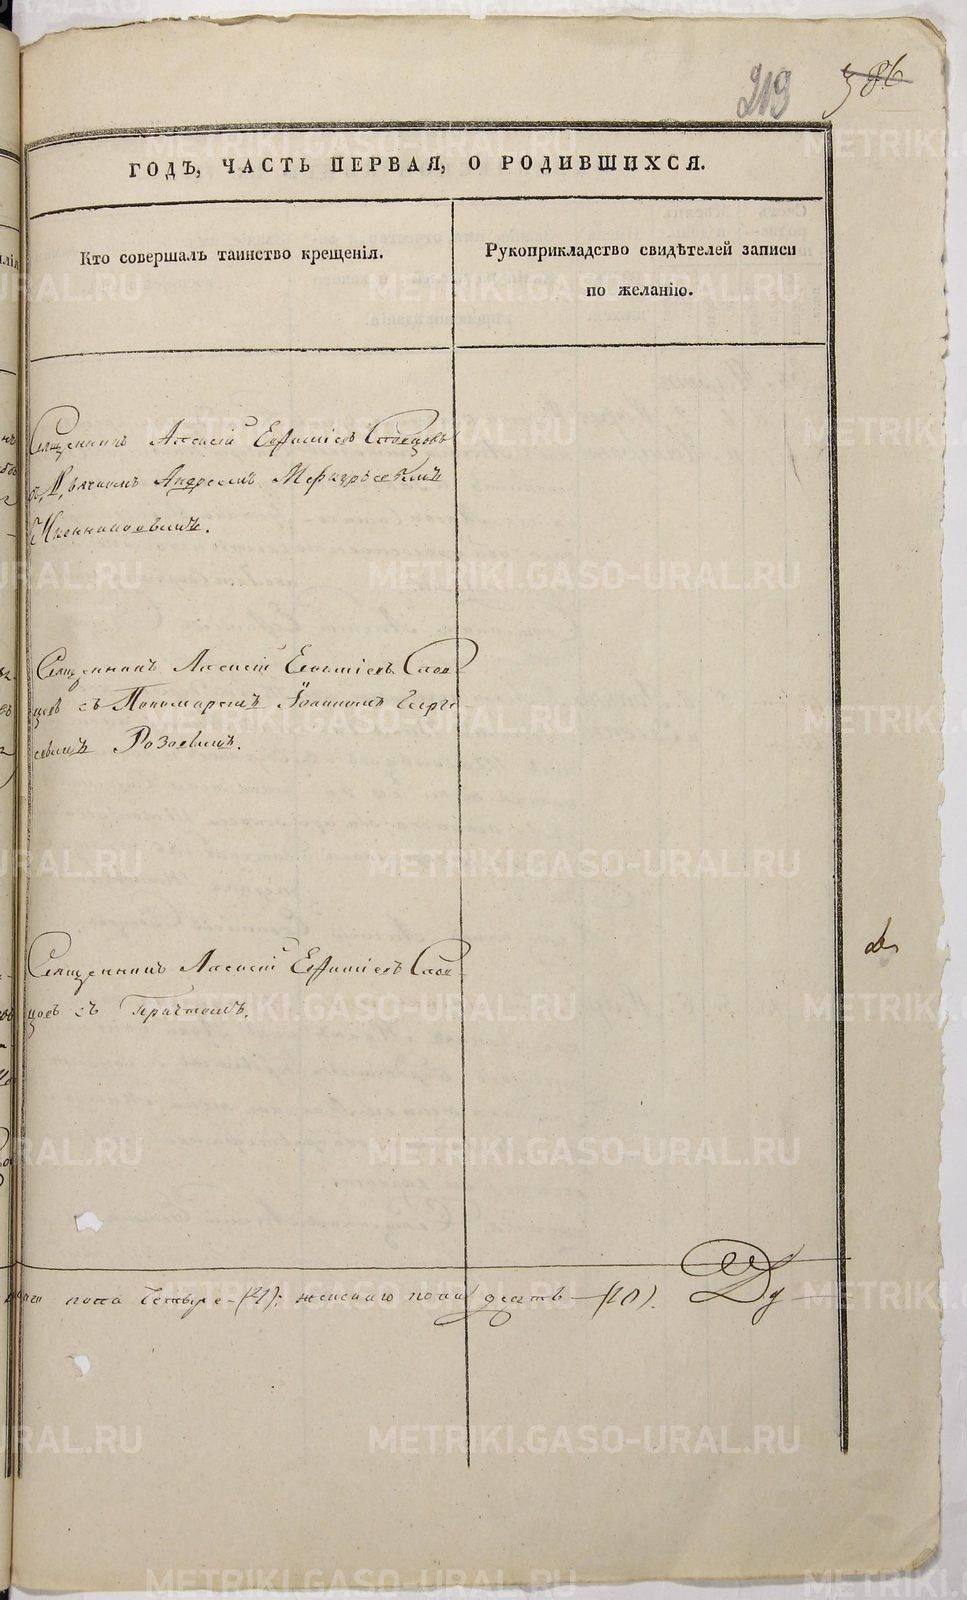 219
386
ГОДЪ, ЧАСТЬ ПЕРВАЯ, О РОДИВШИХСЯ.
Кто совершалъ таинство крещенія.
Рукоприкладство свидѣтелей записи
по желанію.
Священникъ Алексій Евфиміевъ Словцовъ
Андреемъ
Священникъ Алексій Евфиміевъ Слов-
цовъ съ Пономаремъ Іоанномъ Георгі-
евымъ
Священникъ Алексій Евфиміевъ Слов-
цовъ съ Причтомъ.
пола Четыре - (4); женскаго пола десять - (10).
METRIKI.GASO-URAL.RU